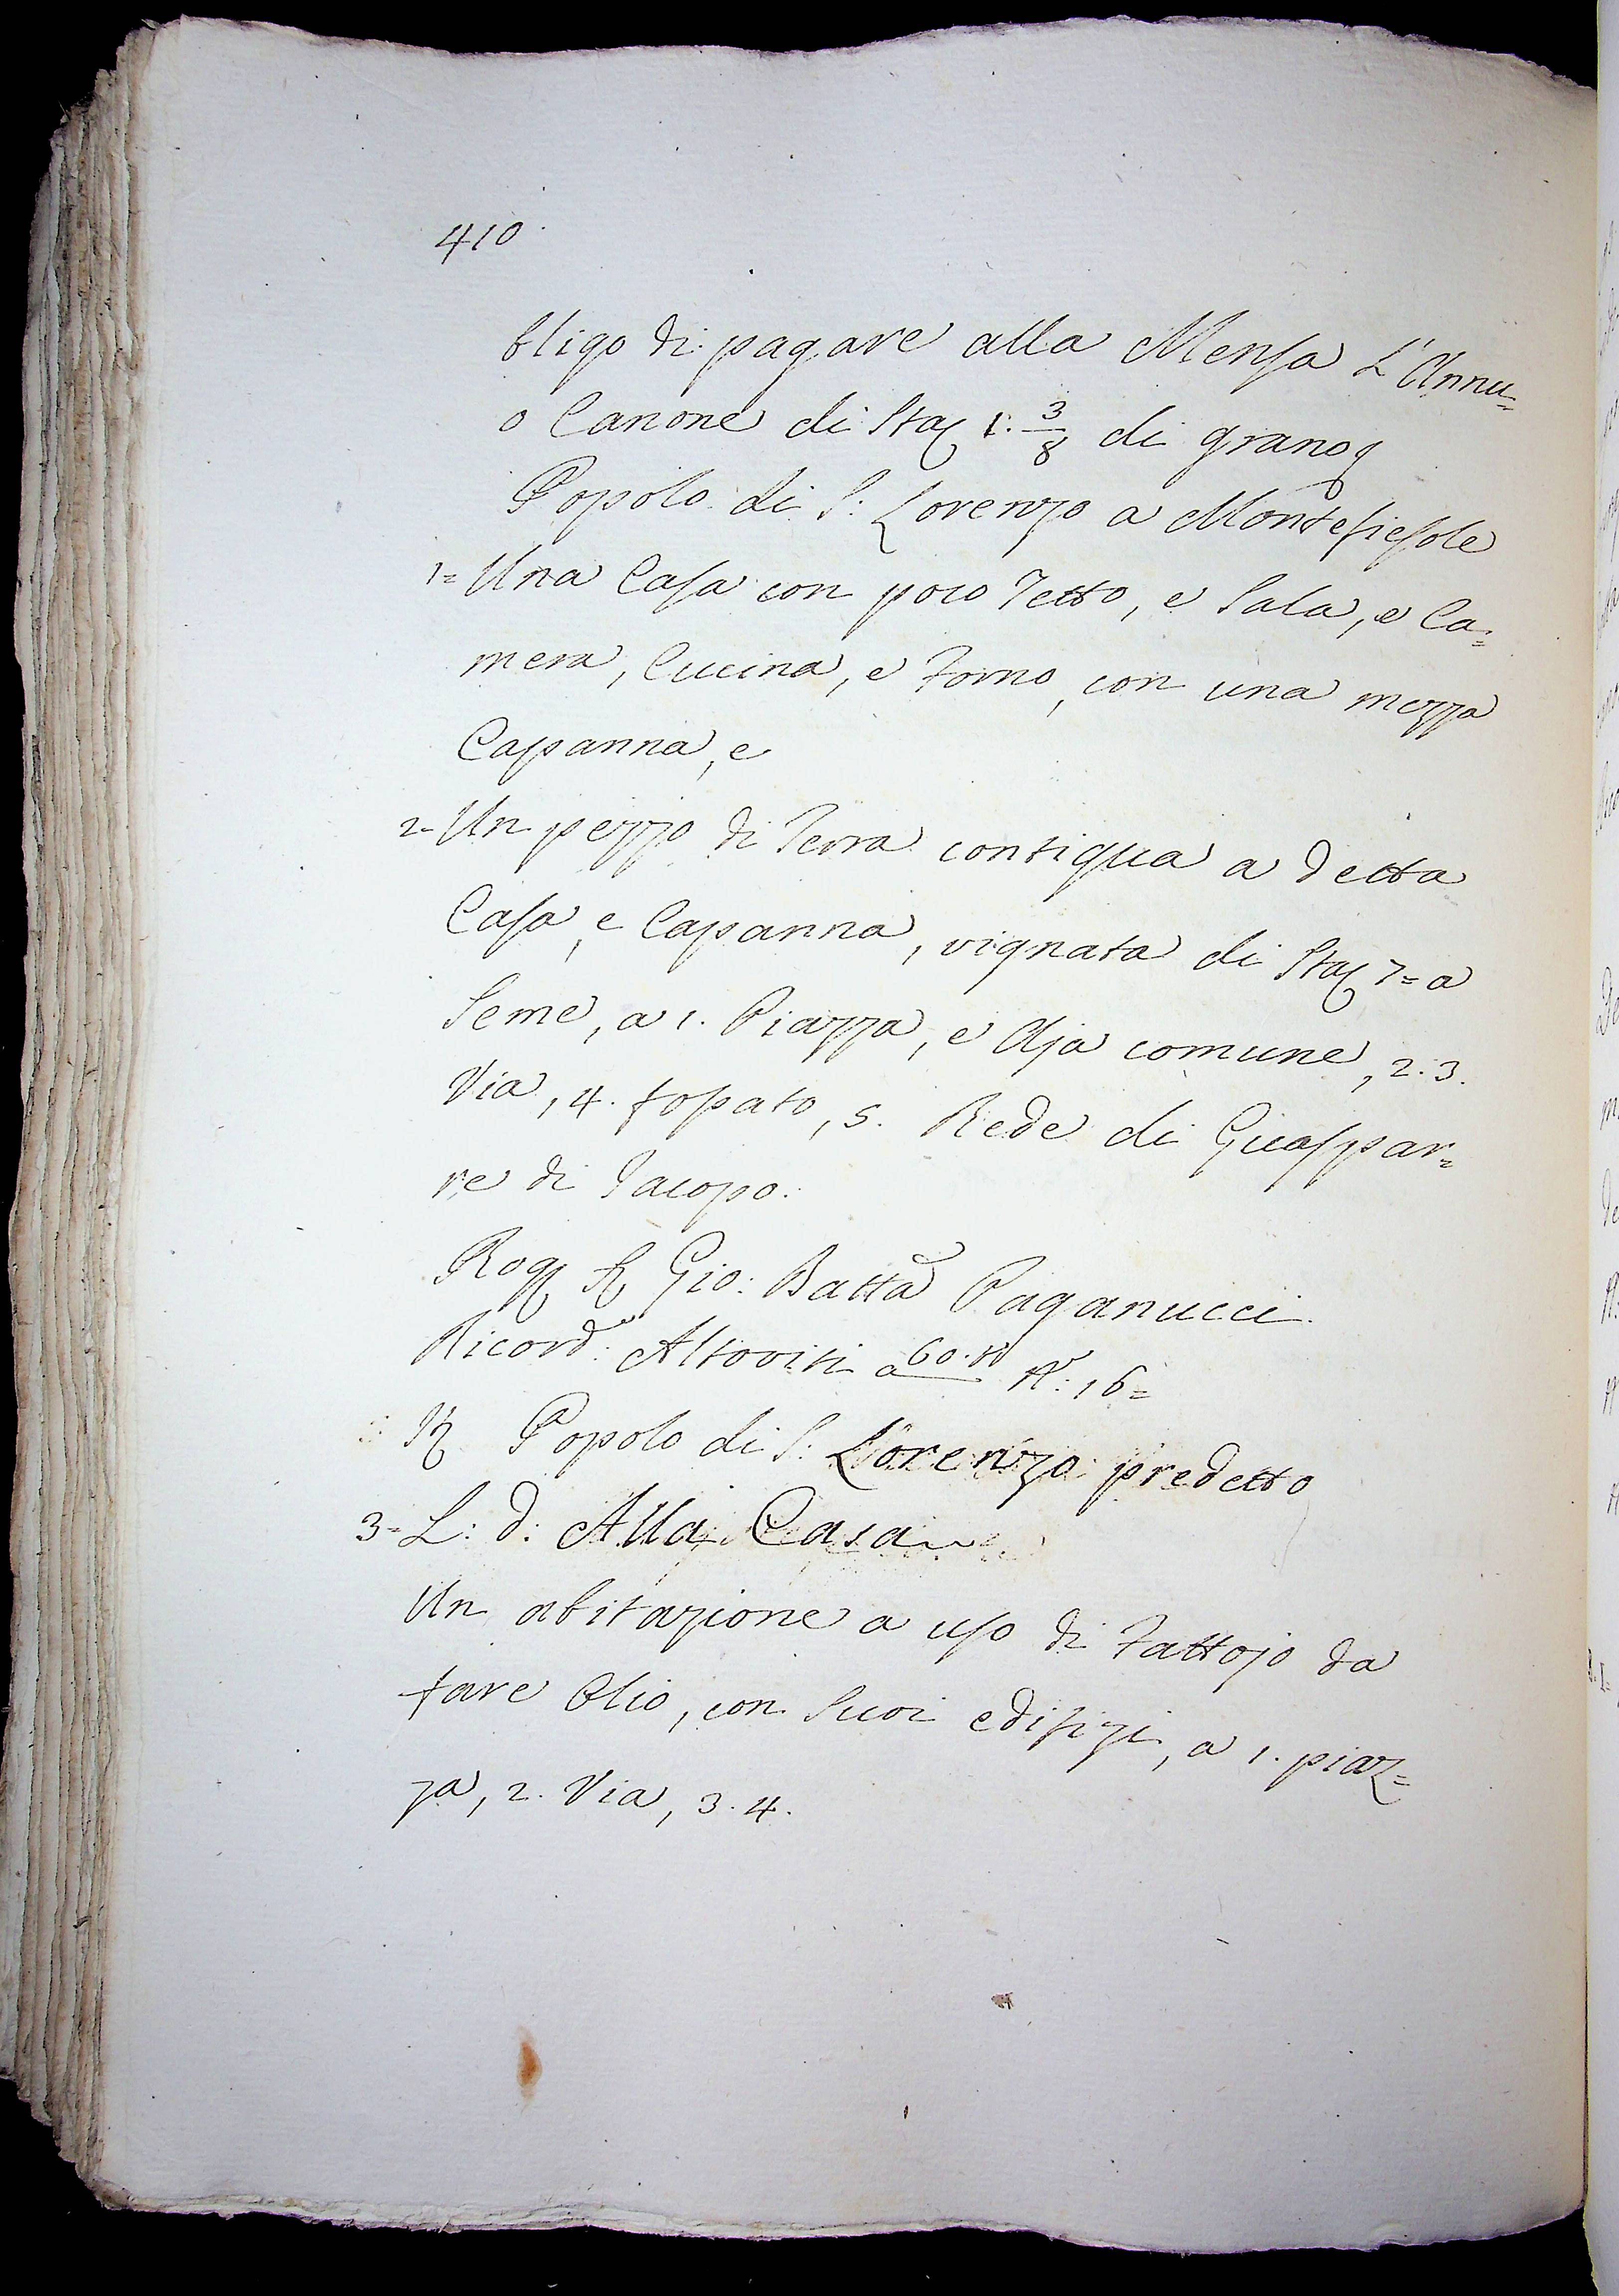 410
bligo di pagare alla Mensa L'Annu=
o Canone di Sta 1. 3/8 di grano
Popolo di S: Lorenzo a Montefiesole
1= Una Casa con poco Tetto, e Sala, e Ca=
mera, Cucina, e Forno, con una mezza
Capanna, e
2- Un pezzo di Terra contigua a detta
Casa, e Capanna, vignata di Sta 7= a
Seme, a 1. Piazza, e Aja comune, 2. 3.
Via, 4. fossato, 5. Rede di Guaspar=
re di Jacopo.
Rog Gio: Batta Paganucci
Ricord: Altoviti a 60. N: 16=
Popolo di S: Lorenzo predetto
3= L: d: Alla Casa
Un abitazione a uso di Fattojo da
fare Olio, con suoi edifizi, a 1. piaz=
za, 2. Via, 3. 4.